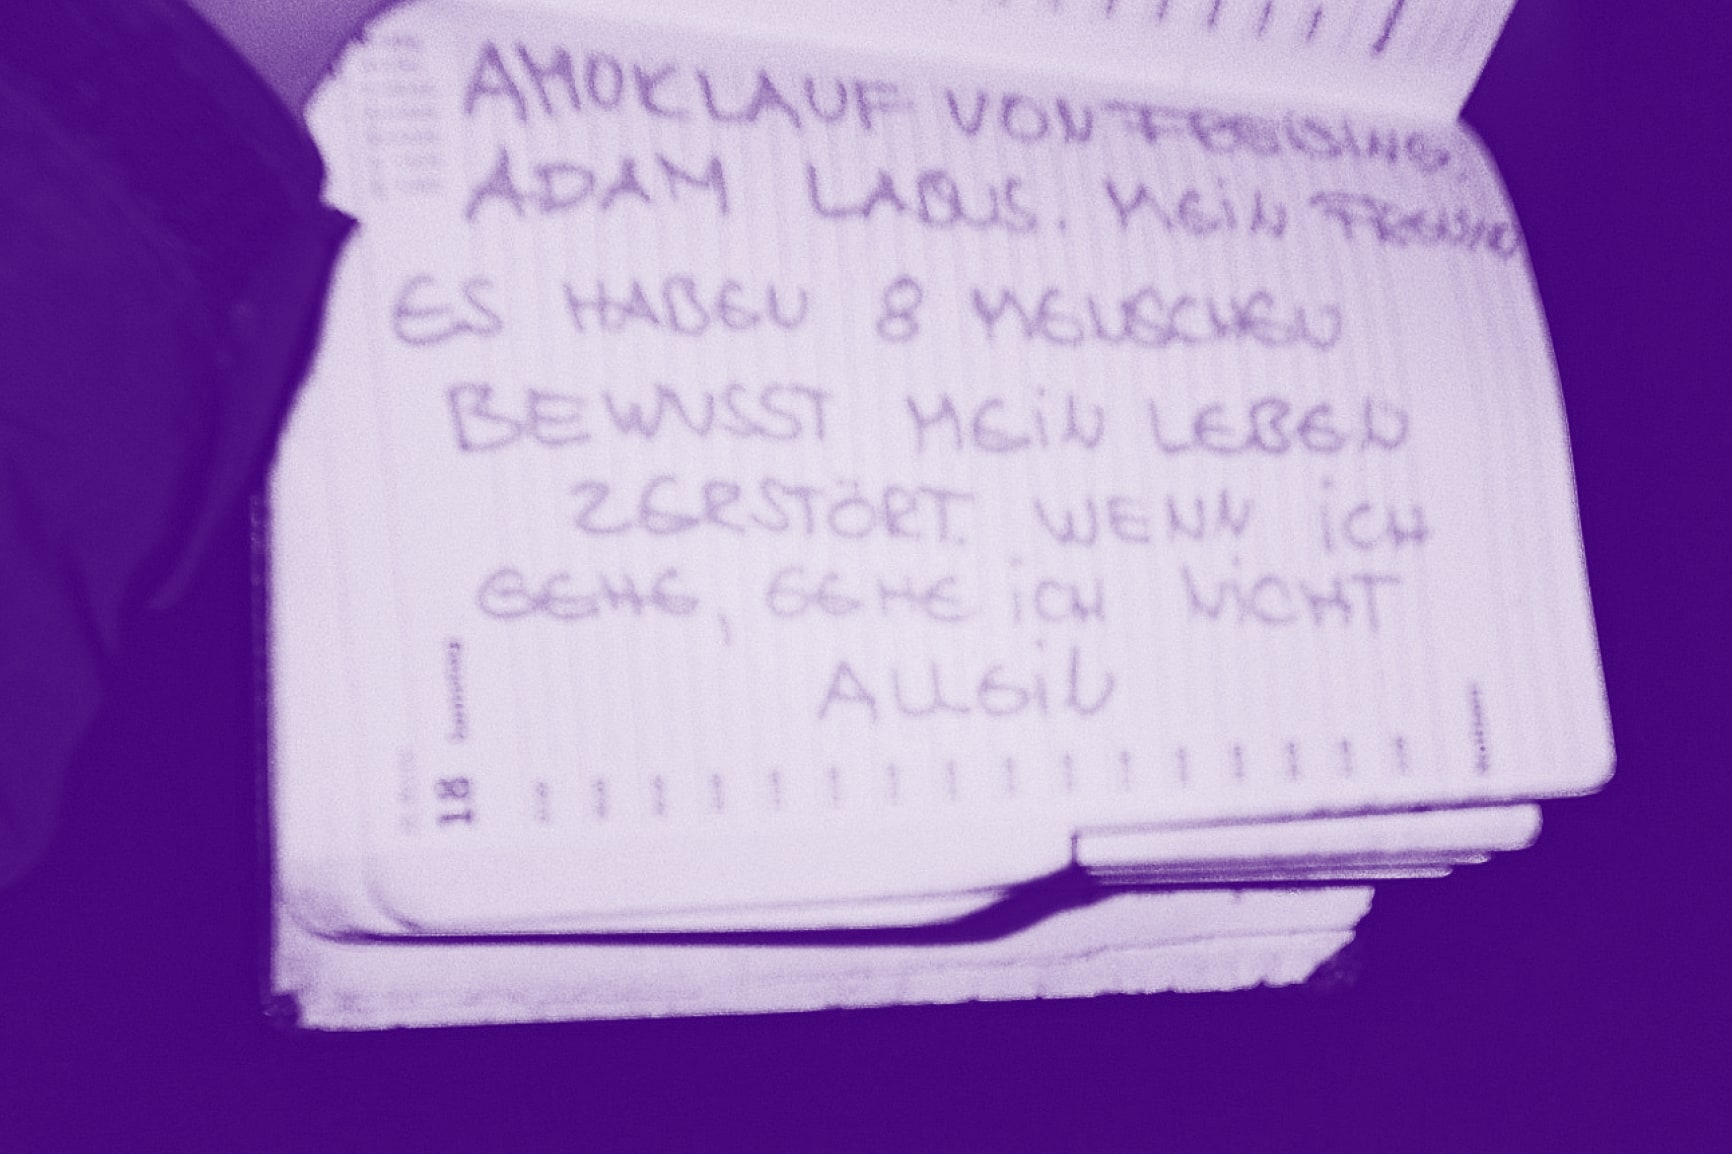 AMOKLAUF VON FREISING.
ADAM LABUS. MEIN FREUND
ES HABEN 8 MENSCHEN
BEWUSST MEIN LEBEN
ZERSTÖRT. WENN ICH
GEHE, GEHE ICH NICHT
ALLEIN
18